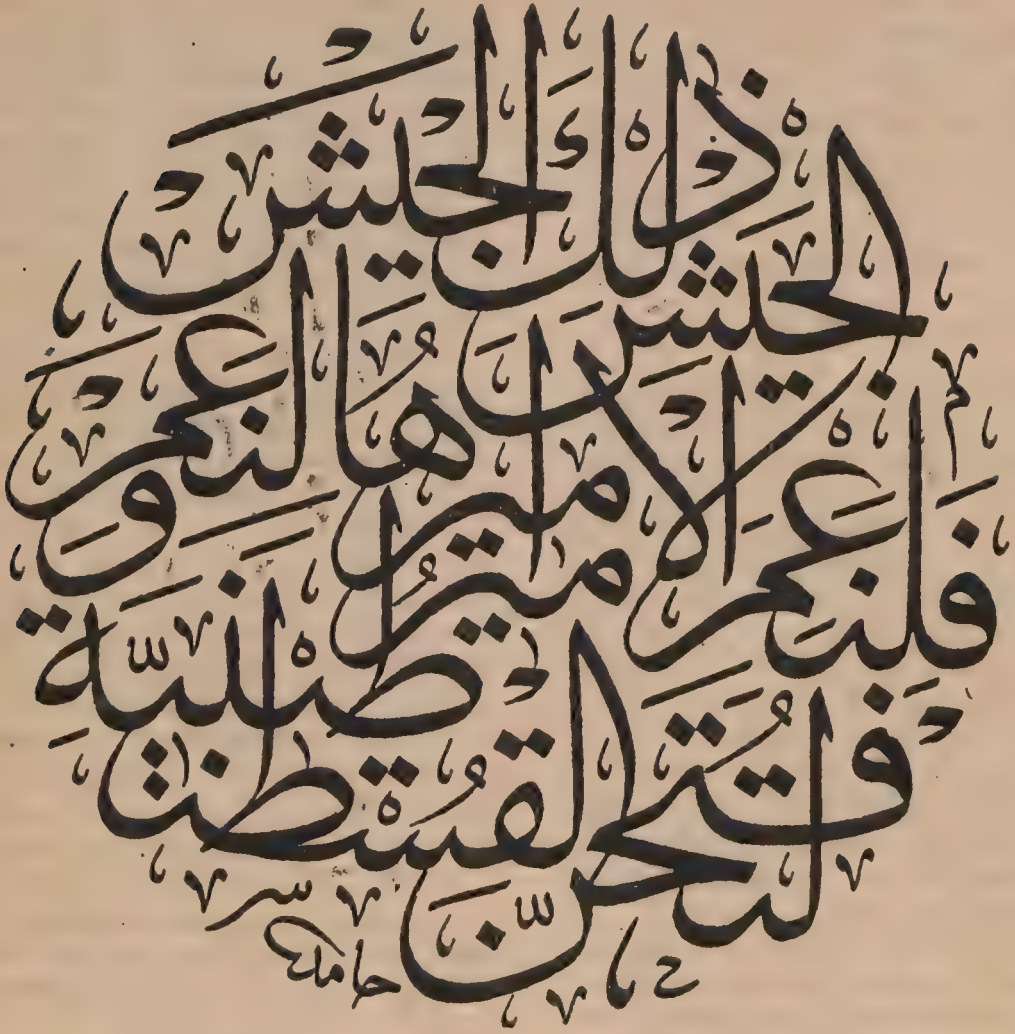 لَتُفْتَحَنَّ الْقُسْطَنْطِنِيَّةُ
فَلَنِعْمَ الْاَمِيرُ اَمِيرُهَا وَلَنِعْمَ
الْجَيْشُ ذٰلِكَ الْجَيْشُ
حامد